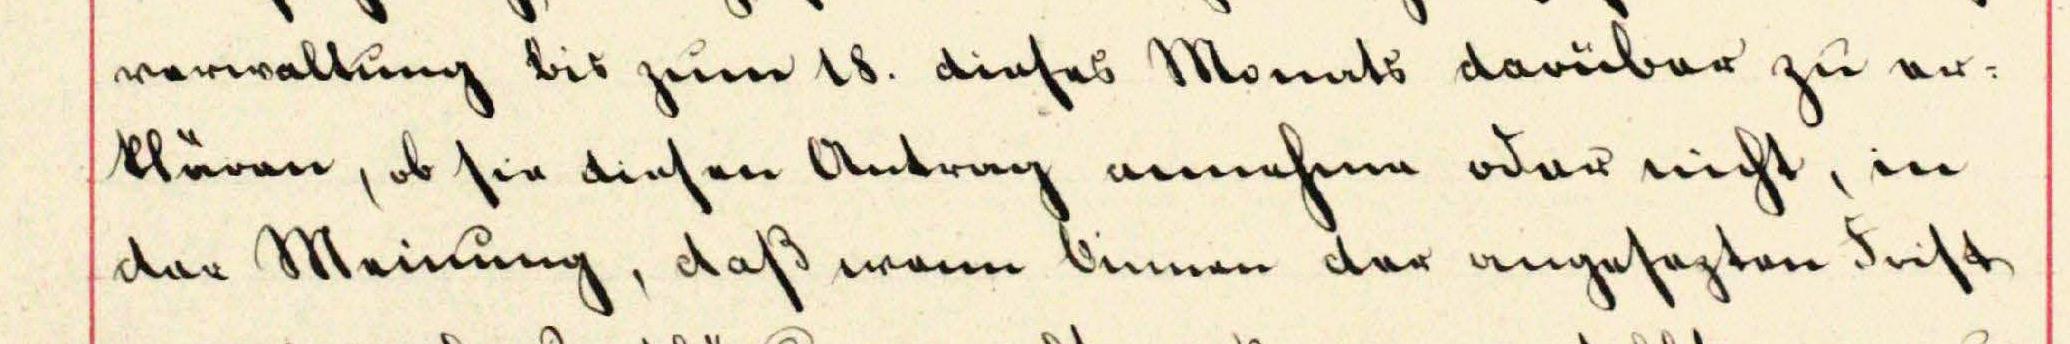 verwaltung bis zum 18. dieses Monats darüber zu er-
klären, ob sie diesen Antrag annehme oder nicht, in
der Meinung, daß wenn binnen der angesezten Frist